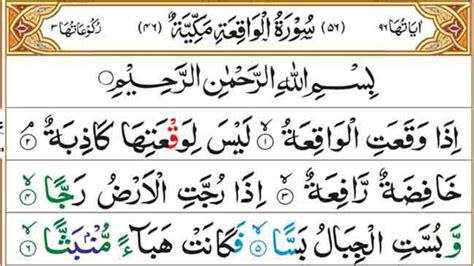 اٰيَاتُهَا ٩٦ (٥٦) سُوْرَةُ الْوَاقِعَةِ مَكِّيَّةٌ (٤٦) رُكُوْعَاتُهَا ٣
بِسْمِ اللهِ الرَّحْمٰنِ الرَّحِيْمِ
اِذَا وَقَعَتِ الْوَاقِعَةُ ۙ﴿١﴾ لَيْسَ لِوَقْعَتِهَا كَاذِبَةٌ ۘ﴿٢﴾
خَافِضَةٌ رَّافِعَةٌ ۙ﴿٣﴾ اِذَا رُجَّتِ الْاَرْضُ رَجًّا ۙ﴿٤﴾
وَّ بُسَّتِ الْجِبَالُ بَسًّا ۙ﴿٥﴾ فَكَانَتْ هَبَآءً مُّنْۢبَثًّا ۙ﴿٦﴾